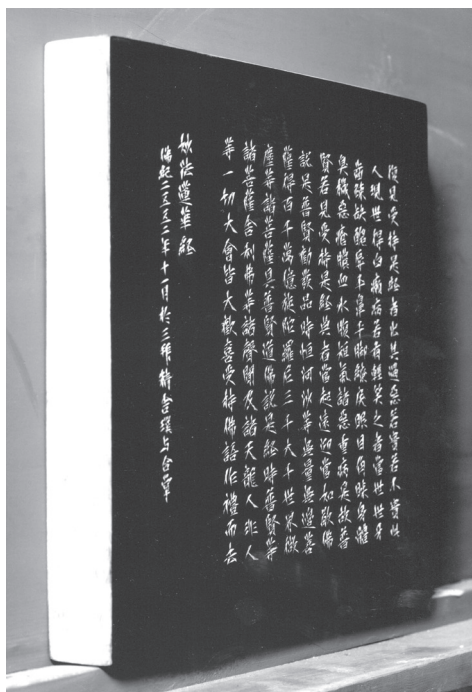 復見受持是經者出其過惡若實若不實此
人現世得白癩病若有輕笑之者當世世牙
齒疎缺醜脣平鼻手脚繚戾眼目角睞身體
臭穢惡瘡膿血水腹短氣諸惡重病是故普
賢若見受持是經典者當起遠迎當如敬佛
說是普賢勸發品時恒河沙等無量無邊菩
薩得百千萬億旋陀羅尼三千大千世界微
塵等諸菩薩具普賢道佛說是經時普賢等
諸菩薩舍利弗等諸聲聞及諸天龍人非人
等一切大會皆大歡喜受持佛語作禮而去
妙法蓮華經
佛紀二五五二年十一月於三精舍合掌